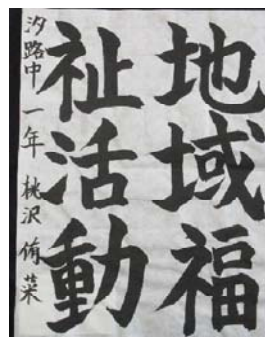 地域福
祉活動
汐路中 一年 桃沢 侑菜